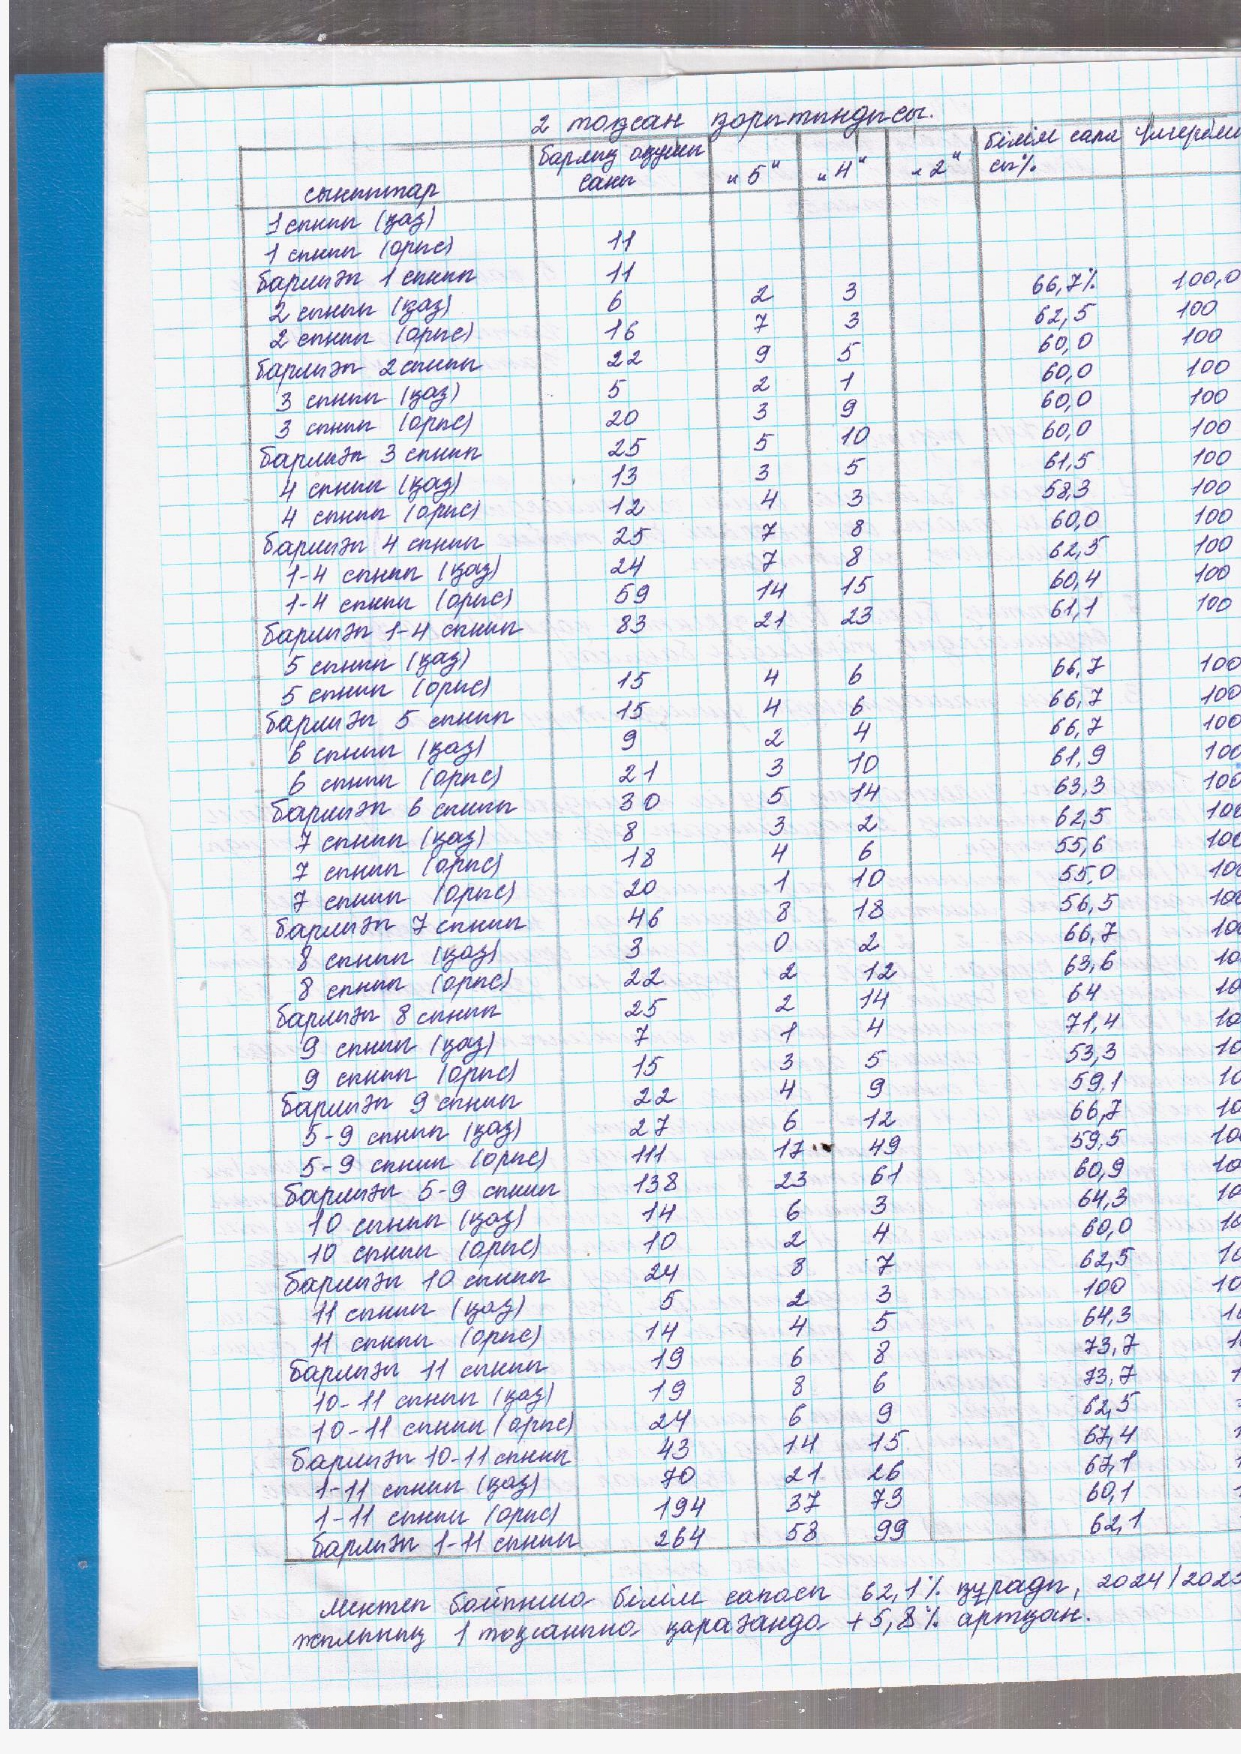 2 тоқсан қорытындысы.
сыныптар барлық оқушы саны "5" "4" "2" білім сапасы% Үлгерімі
1 сынып (қаз)
1 сынып (орыс) 11
барлығы 1 сынып 11
2 сынып (қаз) 6 2 3 66,7% 100,0
2 сынып (орыс) 16 7 3 62,5 100
барлығы 2 сынып 22 9 5 60,0 100
3 сынып (қаз) 5 2 1 60,0 100
3 сынып (орыс) 20 3 9 60,0 100
барлығы 3 сынып 25 5 10 60,0 100
4 сынып (қаз) 13 3 5 61,5 100
4 сынып (орыс) 12 4 3 58,3 100
барлығы 4 сынып 25 7 8 60,0 100
1-4 сынып (қаз) 24 7 8 62,5 100
1-4 сынып (орыс) 59 14 15 60,4 100
барлығы 1-4 сынып 83 21 23 61,1 100
5 сынып (қаз)
5 сынып (орыс) 15 4 6 66,7 100
барлығы 5 сынып 15 4 6 66,7 100
6 сынып (қаз) 9 2 4 66,7 100
6 сынып (орыс) 21 3 10 61,9 100
барлығы 6 сынып 30 5 14 63,3 100
7 сынып (қаз) 8 3 2 62,5 100
7 сынып (орыс) 18 4 6 55,6 100
7 сынып (орыс) 20 1 10 55,0 100
барлығы 7 сынып 46 8 18 56,5 100
8 сынып (қаз) 3 0 2 66,7 100
8 сынып (орыс) 22 2 12 63,6 10
барлығы 8 сынып 25 2 14 64 10
9 сынып (қаз) 7 1 4 71,4 10
9 сынып (орыс) 15 3 5 53,3 10
барлығы 9 сынып 22 4 9 59.1 10
5-9 сынып (қаз) 27 6 12 66,7 10
5-9 сынып (орыс) 111 17 49 59,5 100
барлығы 5-9 сынып 138 23 61 60,9 10
10 сынып (қаз) 14 6 3 64,3 10
10 сынып (орыс) 10 2 4 60,0 10
барлығы 10 сынып 24 8 7 62,5 10
11 сынып (қаз) 5 2 3 100 10
11 сынып (орыс) 14 4 5 64,3 10
барлығы 11 сынып 19 6 8 73,7 1
10-11 сынып (қаз) 19 8 6 73,7 1
10-11 сынып (орыс) 24 6 9 62,5
барлығы 10-11 сынып 43 14 15 67,4
1-11 сынып (қаз) 70 21 26 67,1 1
1-11 сынып (орыс) 194 37 73 60,1 1
барлығы 1-11 сынып 264 58 99 62,1
Мектеп бойынша білім сапасы 62,1% құрады, 2024/2025
жылының 1 тоқсанына қарағанда +5,8% артқан.